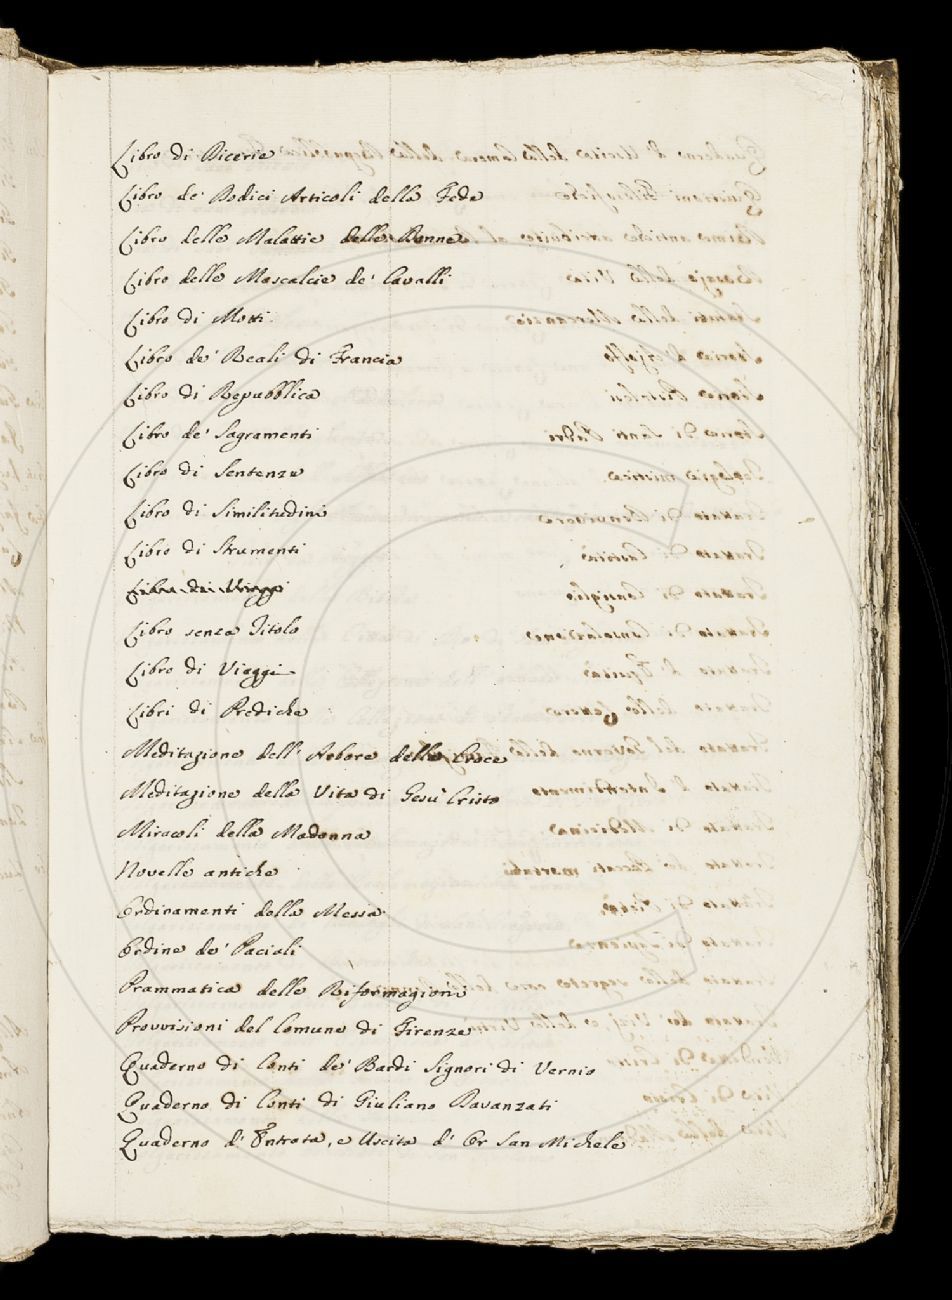 Libro di Dicerie
Libro de' Dodici Articoli della Fede
Libro delle Malattie delle Donne
Libro delle Mascalcie de' Cavalli
Libro di Motti
Libro de' Reali di Francia
Libro di Repubblica
Libro de' Sagramenti
Libro di Sentenze
Libro di Similitudini
Libro di Strumenti
Libro dei Viaggi
Libro senza Titolo
Libro di Viaggi
Libri di Prediche
Meditazione dell' Arbore della Croce
Meditazione della Vita di Gesù Cristo
Miracoli della Madonna
Novelle antiche
Ordinamenti della Messa
Ordine de' Paciali
Prammatica delle Riformagioni
Provvisioni del Comune di Firenze
Quaderno di Conti de' Bardi Signori di Vernio
Quaderno di Conti di Giuliano Davanzati
Quaderno d' Entrata, e Uscita d' Or San Michele